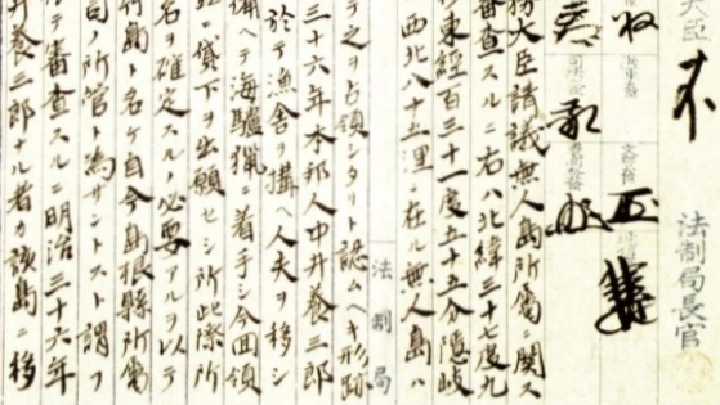 大臣
法制局長官
務大臣請議無人島所属ニ関ス
審査スルニ右ハ北緯三十七度九
東経百三十一度五十五分隠岐
西北八十五浬ニ在ル無人島ハ
法制局
テ之ヲ占領シタリト認ムヘキ形跡
三十六年本邦人中井養三郎
於テ漁舎ヲ構ヘ人夫ヲ移シ
備ヘテ海驢猟ニ着手シ今回領
貸下ヲ出願セシ所此際所
名ヲ確定スルノ必要アルヲ以テ
竹島ト名ケ自今島根縣所属
司ノ所管ト為サントスト謂フ
テ審査スルニ明治三十六年
井養三郎ナル者カ該島ニ移